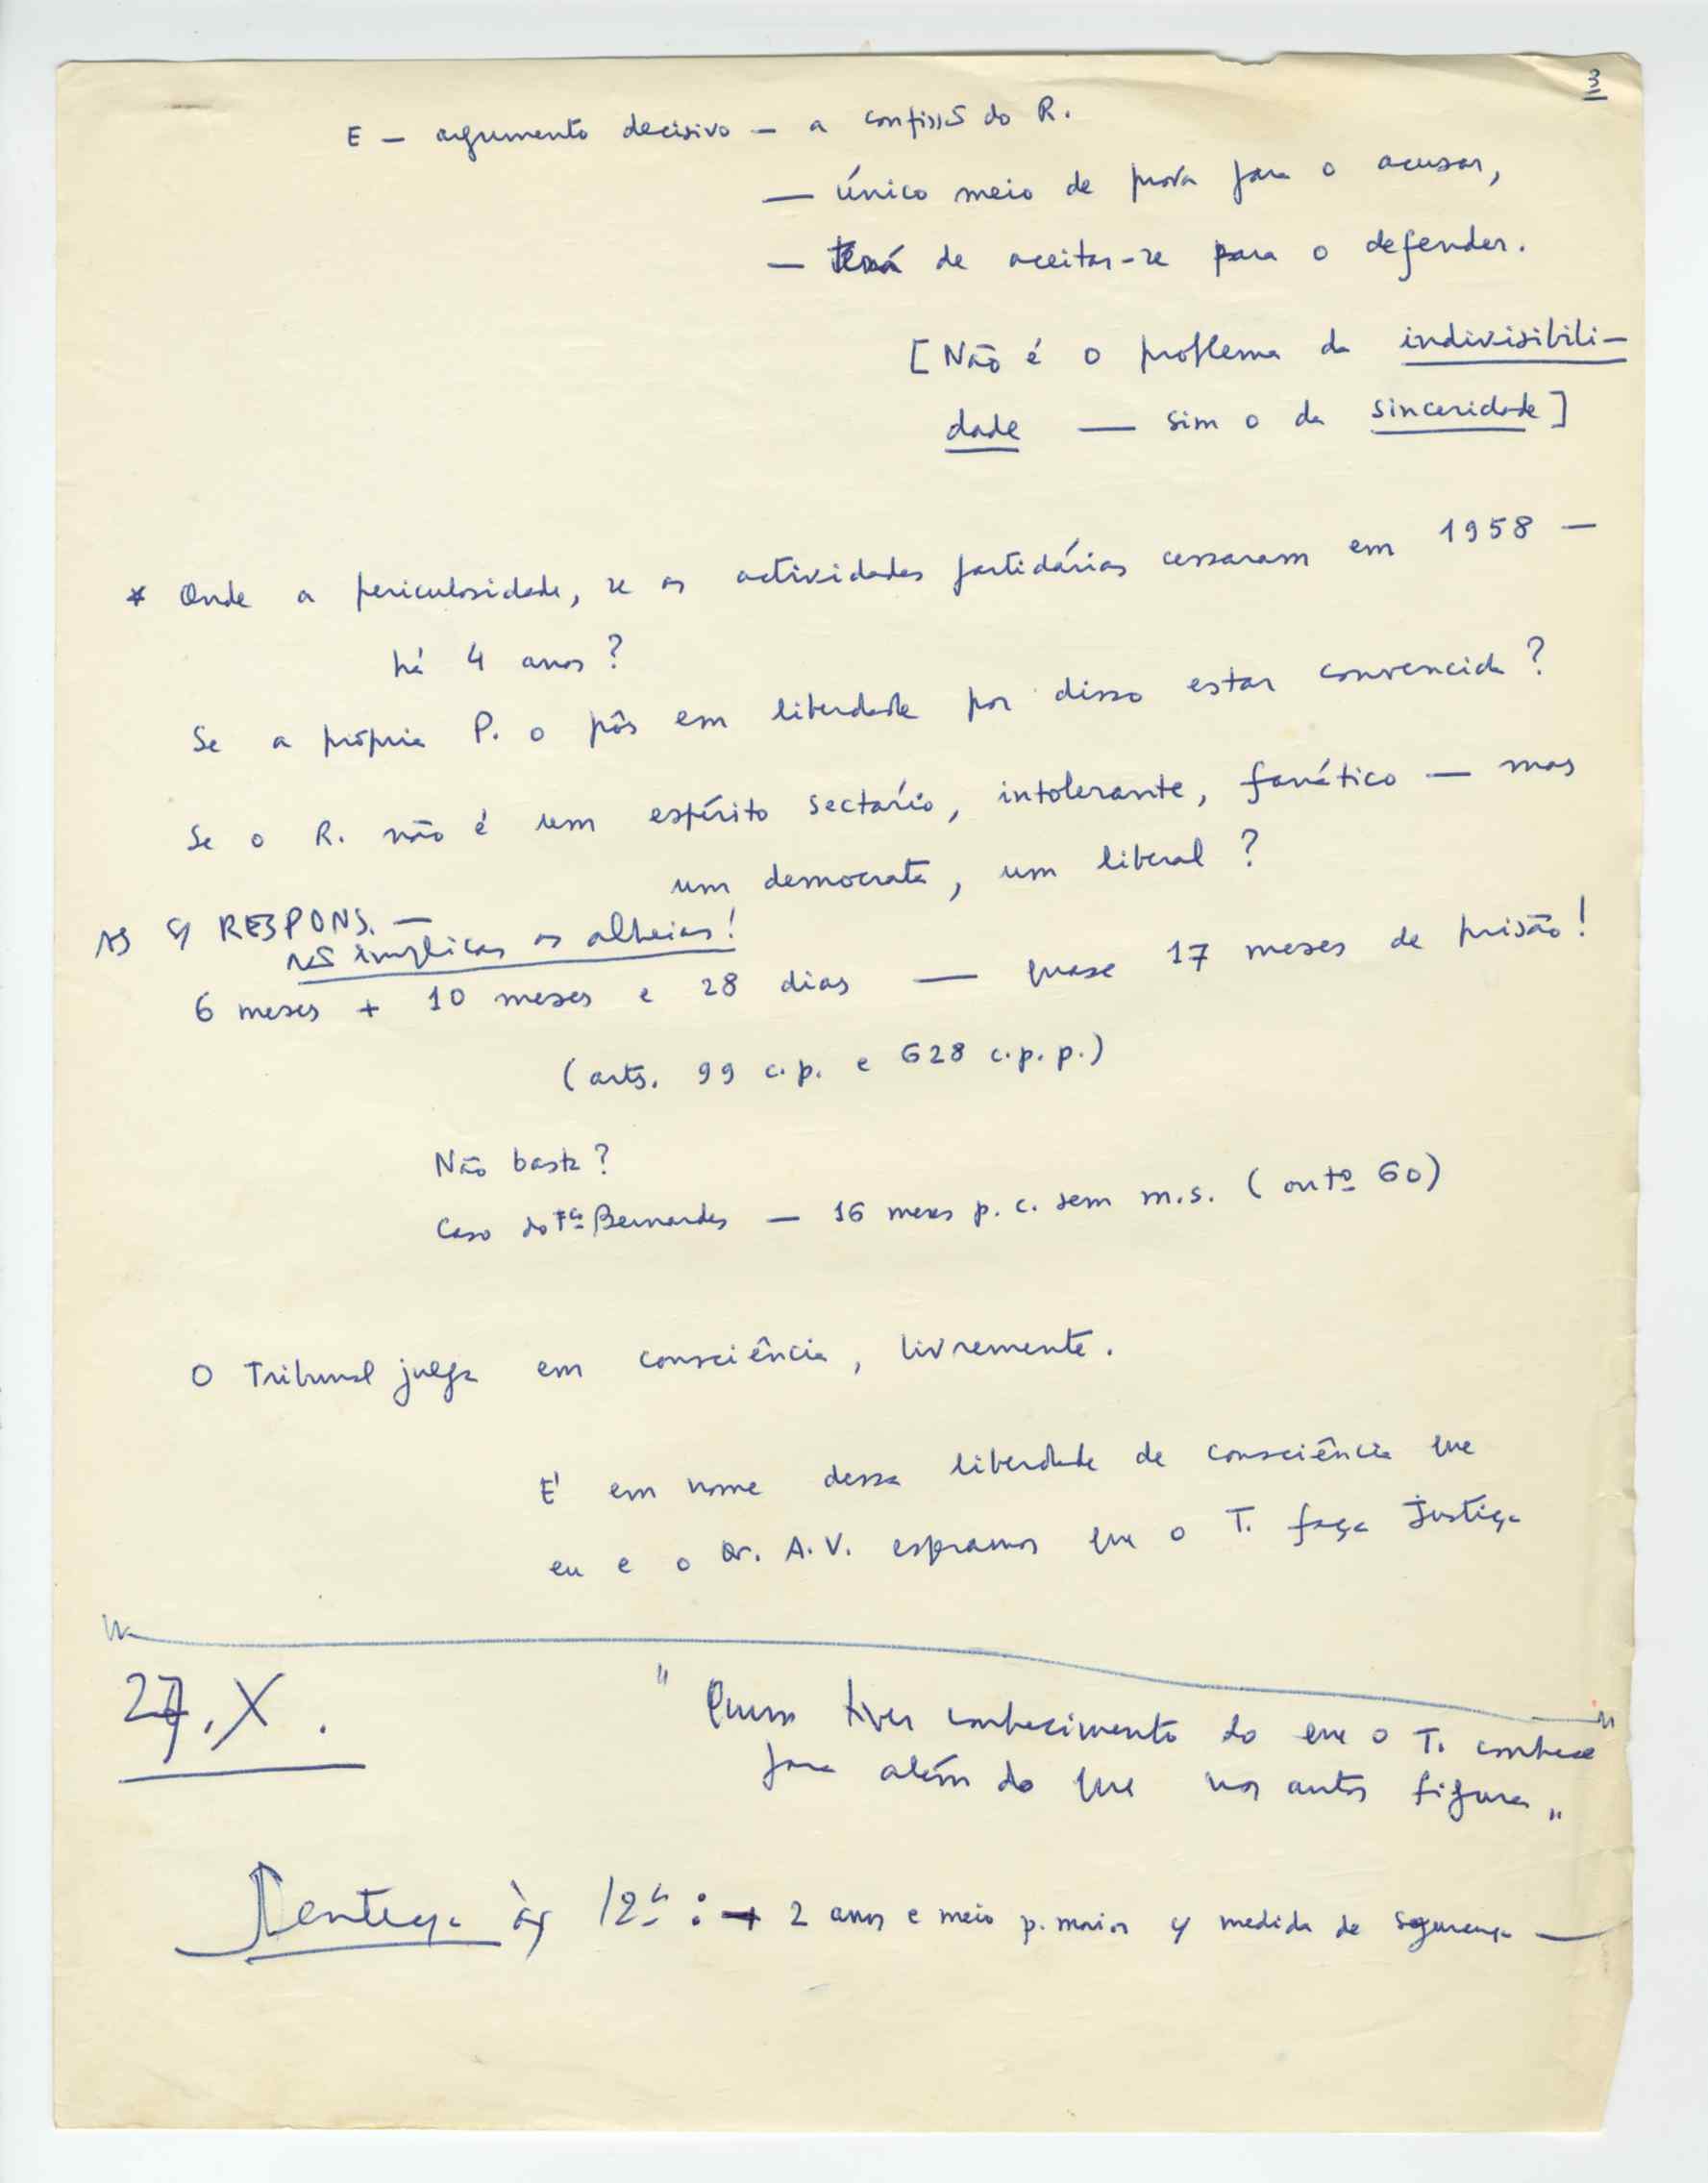 3
E — argumento decisivo — a confissS do R.
— único meio de prova para o acusar,
— terá de aceitar-se para o defender.
[Não é o problema da indivisibili-
dade — sim o da sinceridade]
* Onde a periculosidade, se as actividades partidárias cessaram em 1958 —
há 4 anos?
Se a própria P. o pôs em liberdade por disso estar convencida?
Se o R. não é um espírito sectário, intolerante, fanático — mas
um democrata, um liberal?
AS RESPONS. —
implicam as alheias!
6 meses + 10 meses e 28 dias — quase 17 meses de prisão!
(arts. 99 c.p. e 628 c.p.p.)
Não basta?
Caso do Bernardes — 16 meses p. c. sem m.s. (outº 60)
O Tribunal julga em consciência, livremente.
É em nome dessa liberdade de consciência que
eu e o Dr. A.V. esperamos que o T. faça Justiça
27.X.
" Quem tiver conhecimento do que o T. conhece
para além do que nos autos figura "
Sentença às 12h : 2 anos e meio p. maior medida de segurança —